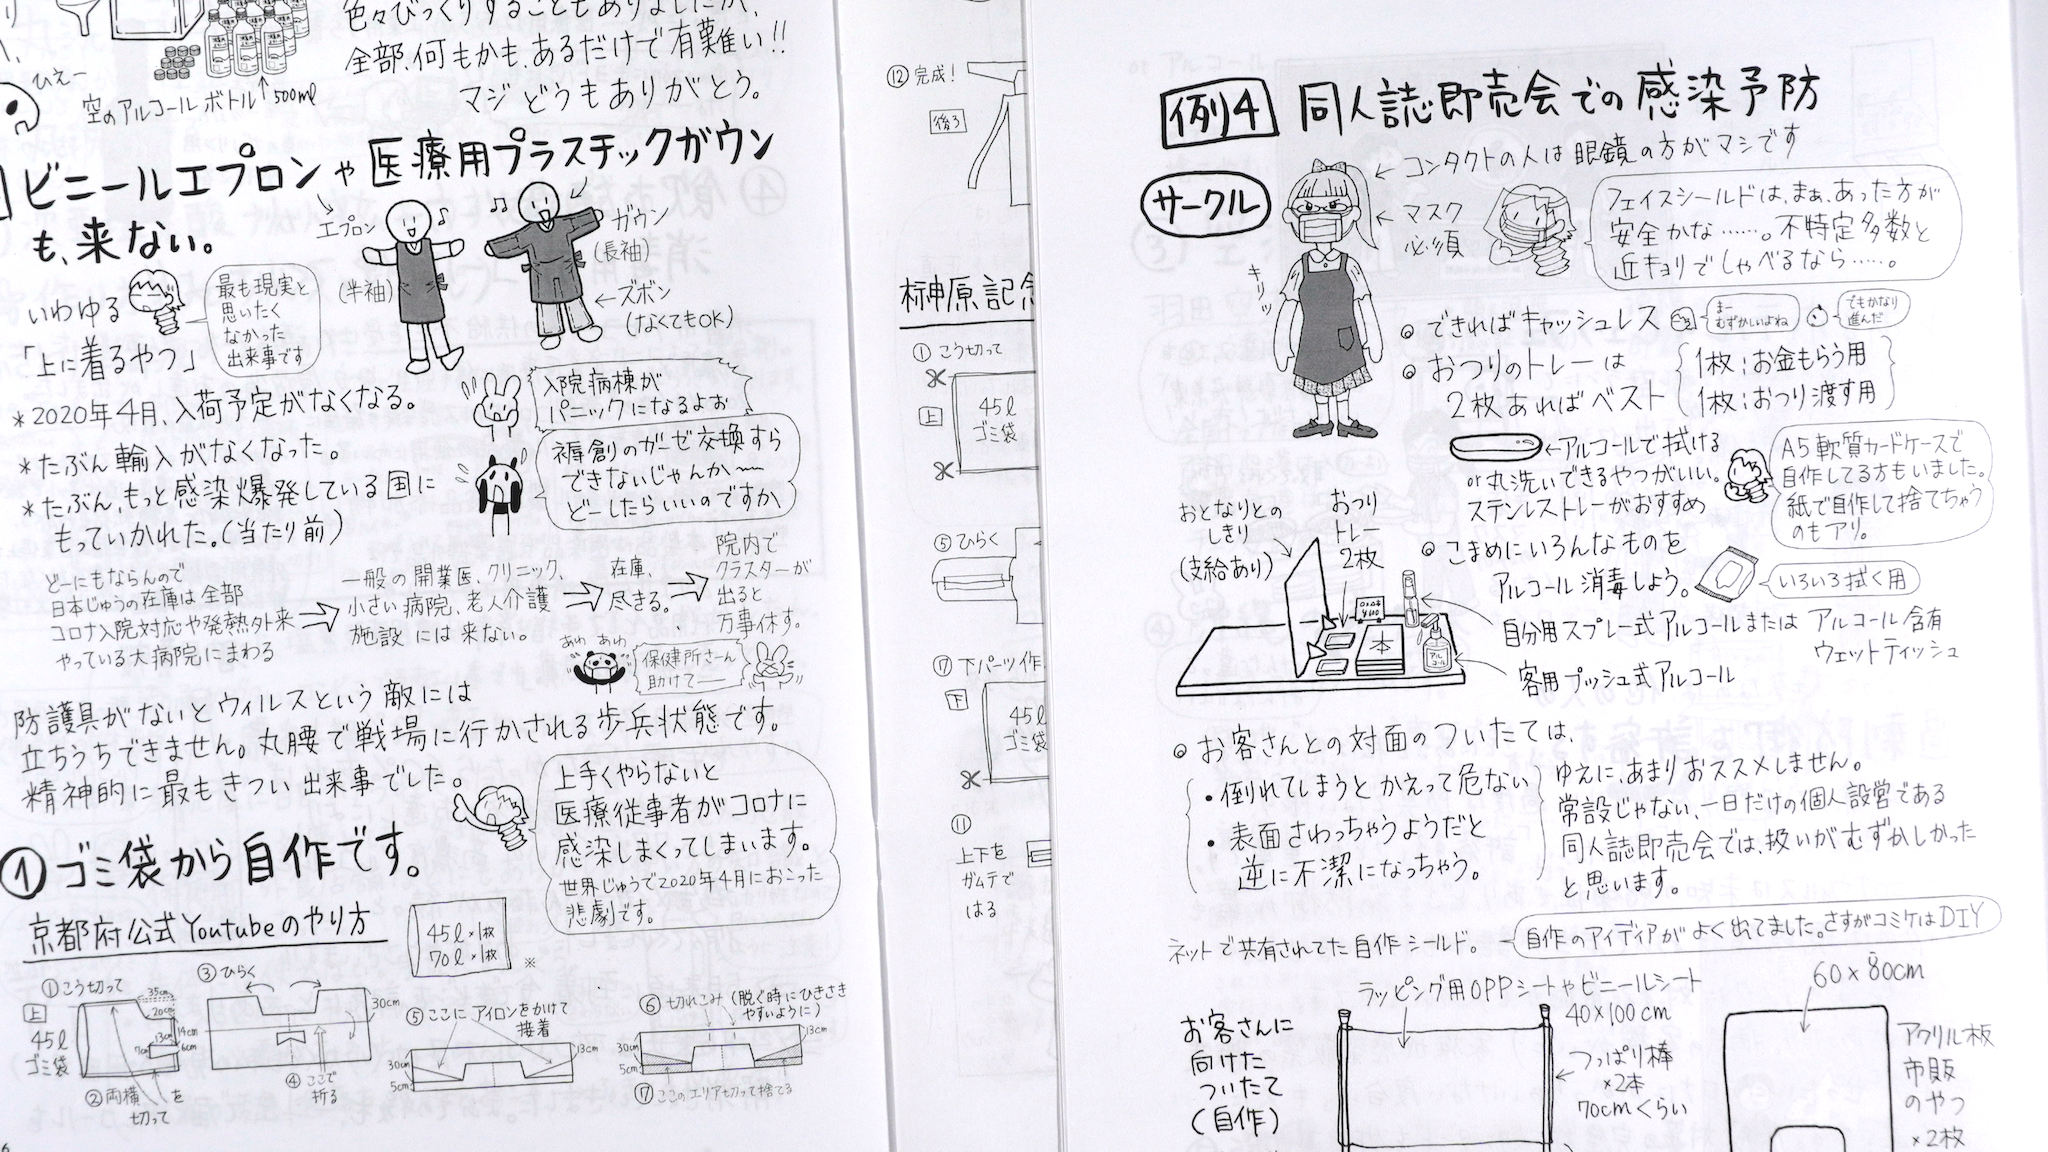 色々びっくりすることもありましたが、
全部、何もかも、あるだけで有難い!!
マジどうもありがとう。
ひえー
空のアルコールボトル
500ml
ビニールエプロンや医療用プラスチックガウン
も、来ない。
エプロン
(半袖)
ガウン
(長袖)
ズボン
(なくてもOK)
いわゆる
「上に着るやつ」
最も現実と
思いたく
なかった
出来事です
*2020年4月、入荷予定がなくなる。
*たぶん輸入がなくなった。
*たぶん、もっと感染爆発している国に
もっていかれた。(当たり前)
入院病棟が
パニックになるよお
褥創のガーゼ交換すら
できないじゃんか〜
どーしたらいいのですか
どーにもならんので
日本じゅうの在庫は全部
コロナ入院対応や発熱外来
やっている大病院にまわる
一般の開業医、クリニック、
小さい病院、老人介護
施設には来ない。
在庫、
尽きる。
院内で
クラスターが
出ると
万事休す。
あわ あわ
保健所さーん
助けてー
防護具がないとウィルスという敵には
立ちうちできません。丸腰で戦場に行かされる歩兵状態です。
精神的に最もきつい出来事でした。
上手くやらないと
医療従事者がコロナに
感染しまくってしまいます。
世界じゅうで2020年4月におこった
悲劇です。
①ゴミ袋から自作です。
京都府公式Youtubeのやり方
45ℓ×1枚
70ℓ×1枚
※
①こう切って
上
45ℓ
ゴミ袋
35cm
20cm
13cm
7cm
14cm
6cm
②両横を
切って
③ひらく
30cm
④ここで
折る
⑤ここにアイロンをかけて
接着
30cm
5cm
13cm
⑥切れこみ(脱ぐ時にひきさき
やすいように)
30cm
5cm
13cm
⑦ここのエリア切って捨てる
6
⑫完成!
後ろ
榊原記念
①こう切って
上
45ℓ
ゴミ袋
⑤ひらく
⑰下パーツ作
下
45ℓ
ゴミ袋
⑪
上下を
ガムテで
はる
例4 同人誌即売会での感染予防
サークル
コンタクトの人は眼鏡の方がマシです
マスク
必須
キリッ
フェイスシールドは、まぁ、あった方が
安全かな……。不特定多数と
近キョリでしゃべるなら……。
◎できればキャッシュレス
まー
むずかしいよね
でもかなり
進んだ
◎おつりのトレーは
2枚あればベスト
1枚;お金もらう用
1枚;おつり渡す用
←アルコールで拭ける
or丸洗いできるやつがいい。
ステンレストレーがおすすめ
A5軟質カードケースで
自作してる方もいました。
紙で自作して捨てちゃう
のもアリ。
おとなりとの
しきり
(支給あり)
おつり
トレー
2枚
◎こまめにいろんなものを
アルコール消毒しよう。
いろいろ拭く用
本
アルコール
自分用スプレー式アルコールまたは
アルコール含有
ウェットティッシュ
客用プッシュ式アルコール
◎お客さんとの対面のついたては、
・倒れてしまうとかえって危ない
・表面さわっちゃうようだと
逆に不潔になっちゃう。
ゆえに、あまりおススメしません。
常設じゃない、一日だけの個人設営である
同人誌即売会では、扱いがむずかしかった
と思います。
ネットで共有されてた自作シールド。
自作のアイディアがよく出てました。さすがコミケはDIY
ラッピング用OPPシートやビニールシート
40×100cm
60×80cm
お客さんに
向けた
ついたて
(自作)
つっぱり棒
×2本
70cmくらい
アクリル板
市販
のやつ
×2枚